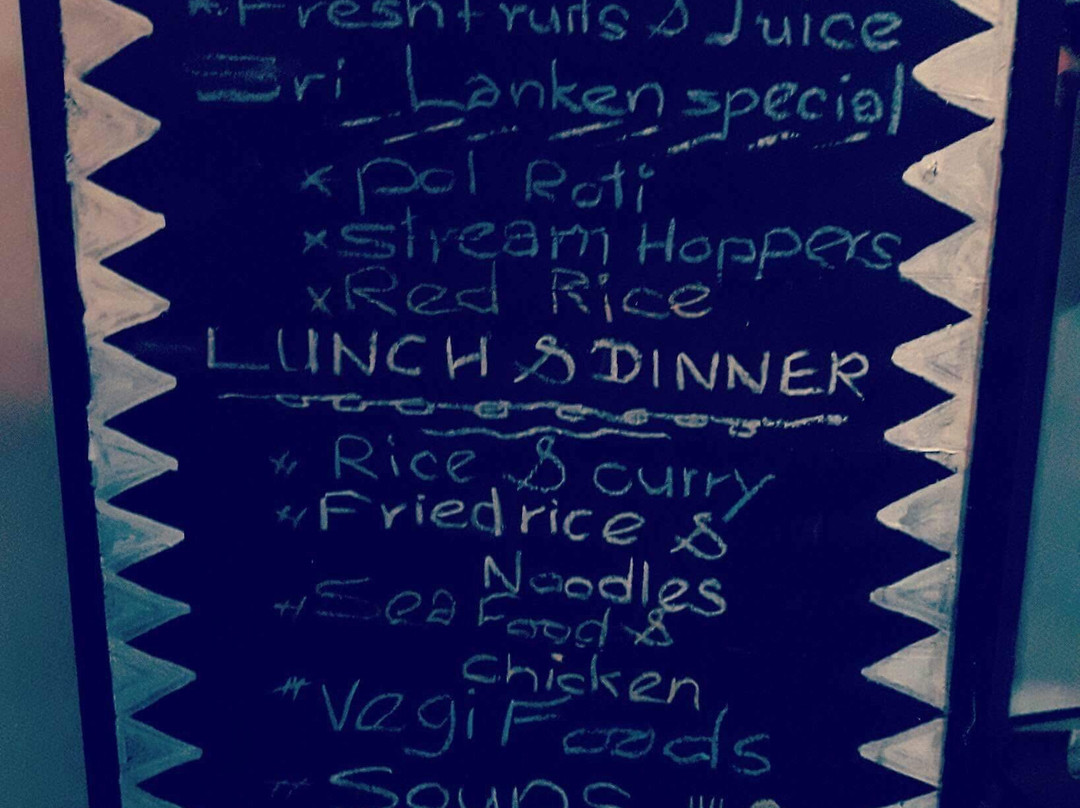 * Fresh fruits & Juice
Sri Lanken special
x Pol Roti
x Stream Hoppers
x Red Rice
LUNCH & DINNER
* Rice & curry
* Fried rice &
Noodles
* Sea Food &
chicken
* Vegi Foods
* Soups